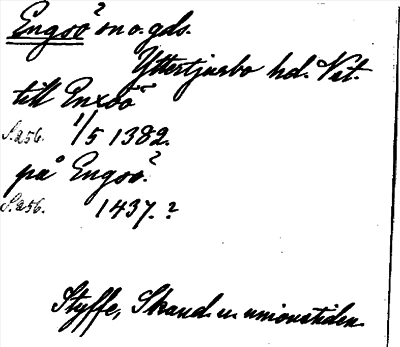 Engsö² sn o. gds.
Yttertjurbo hd. Vst.
till Enxöö²
S. 256. 1/5 1382.
på Engsö.²
S. 256. 1437.?
Styffe, Skand. u. unionstiden.